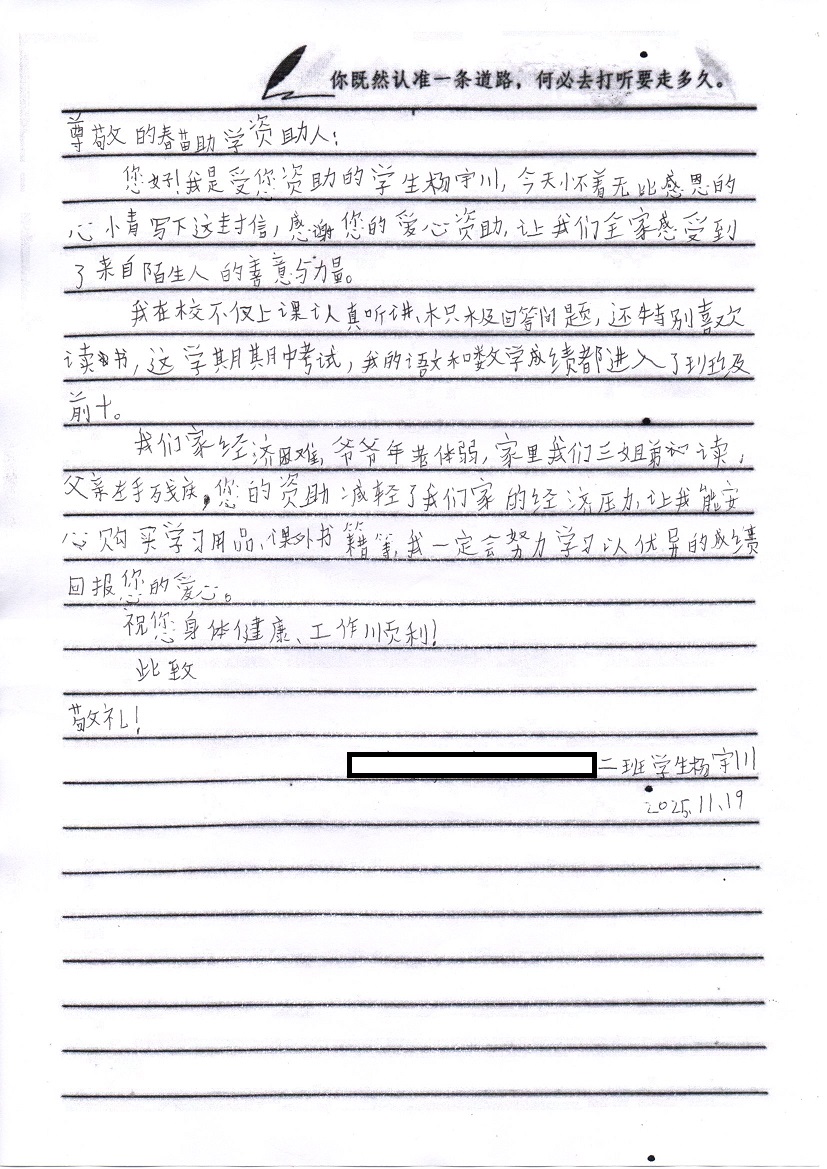 你既然认准一条道路，何必去打听要走多久。
尊敬的春苗助学资助人：
您好！我是受您资助的学生杨宇川，今天怀着无比感恩的
心情写下这封信，感谢您的爱心资助，让我们全家感受到
了来自陌生人的善意与力量。
我在校不仅上课认真听讲、积极回答问题，还特别喜欢
读书，这学期期中考试，我的语文和数学成绩都进入了班级
前十。
我们家经济困难，爷爷年老体弱，家里我们三姐弟 读，
父亲左手残疾，您的资助减轻了我们家的经济压力，让我能安
心购买学习用品、课外书籍等，我一定会努力学习以优异的成绩
回报您的爱心。
祝您身体健康、工作顺利！
此致
敬礼！
二班学生杨宇川
2025.11.19